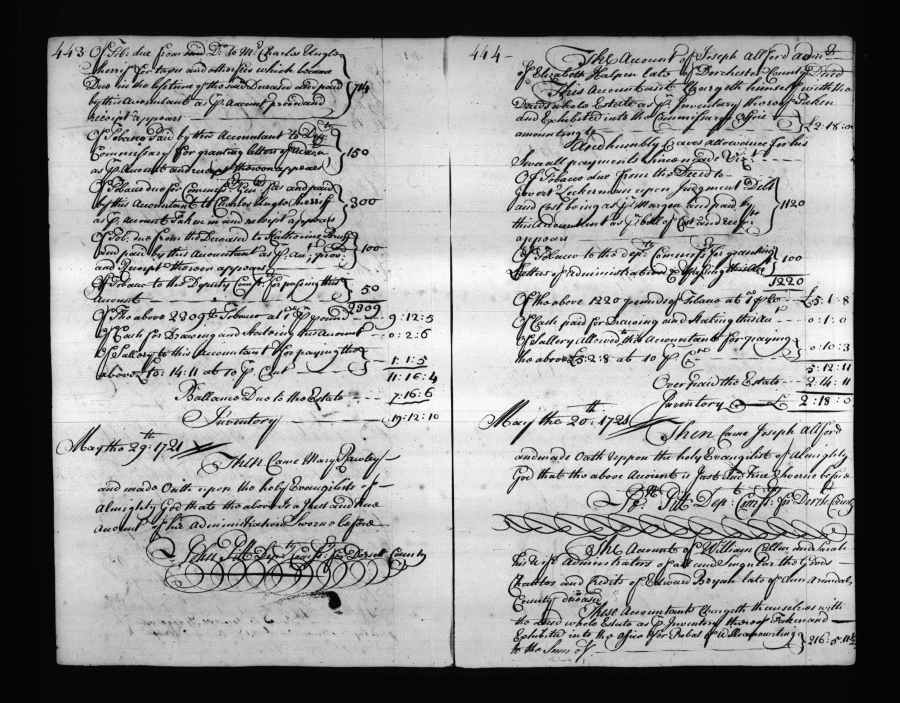 443
Of Tob: due from said Dr. to Mr. Charles Ungle
Sherrif for taxes and other fees which became
Due in the lifetime of the said Deceased and paid
by this Accountant as pr. Account proved and
receipt appears } 714
Of Tobacco Paid by this Accountant to Depty
Commissary for granting letters of Admn
as pr. Account and receipt thereon appears } 150
Of Tobacco due for Commissrs. fees and paid
by this Accountant to Charles Ungle Sherriff
as pr. Account Taken in and receipt appears } 300
Of Tob: due from the Deceased to Katherine
and paid by this Accountant as pr. Acct. prov:
and Receipt thereon appears } 100
Of Tobacco to the Deputy Comsr. for passing this
Account } 50
2309
Of The above 2309 l Tobacco at 1d pr pound -- 9:12:5
Of Cash for Drawing and Stateing this Account -- 0:2:6
Of Sallery to this Accountant for paying the
above £15:14:11 at 10 pr. Cent 1:1:5
11:16:4
Ballance Due to the Estate -- 7:16:6
Inventory 19:12:10
May the 29th: 1721
Then Came Mary Pawley
and made Oath upon the holy Evangilists of
Almighty God that the above Is a Just and true
Account of her Administration Sworne before
John Pitt Depty Comiss: for Dorsett County
444
The Account of Joseph Allford Admr.
of Elizabeth Halpen late of Dorchester County Deced
This Accountant Chargeth himself with the
Deceds whole Estate as pr Inventory thereof Taken
and Exhibited into the Commissarys Office
amounting to } £2:18:0
And humbly Craves allowance for his
Severall payments since made Vizt.
Of Tobacco due from the Deced to
Govert Lockerman upon Judgment Debt
and Cost being as pr. Margen and paid by
this Accountant as pr. bill of Cost and recpt
appears } 1120
Of Tobacco to the Dep: Commiss: for granting
Letters of Administration & passing this Acct } 100
1220
Of the above 1220 pounds of Tobacco at 1d pr lb -- £5:1:8
Of Cash paid for Drawing and Stating this Act -- 0:1:0
Of Sallery Allowed the Accountant for paying
the above £5:2:8 at 10 pr. Ct. } 0:10:3
5:12:11
Over paid the Estate -- 2:14:11
Inventory £ 2:18:0
May the 20th: 1721
Then Came Joseph Allford
and made Oath uppon the holy Evangilist of Almighty
God that the above Account is Just and True Sworne before
Pr. Jno. Pitt Dep: Comiss: for Dorstr. County
The Account of William Cellus and Sarah
his Wife Administrators of all and Singular the Goods
Chattles and Credits of Edward Bryan late of Ann Arundall
County deceased
These Accountants Chargeth themselves with
the Deced whole Estate as pr Inventory thereof Taken and
Exhibited into the Office for Probat of Wills amounting
to the Sum of } 216:5:11½